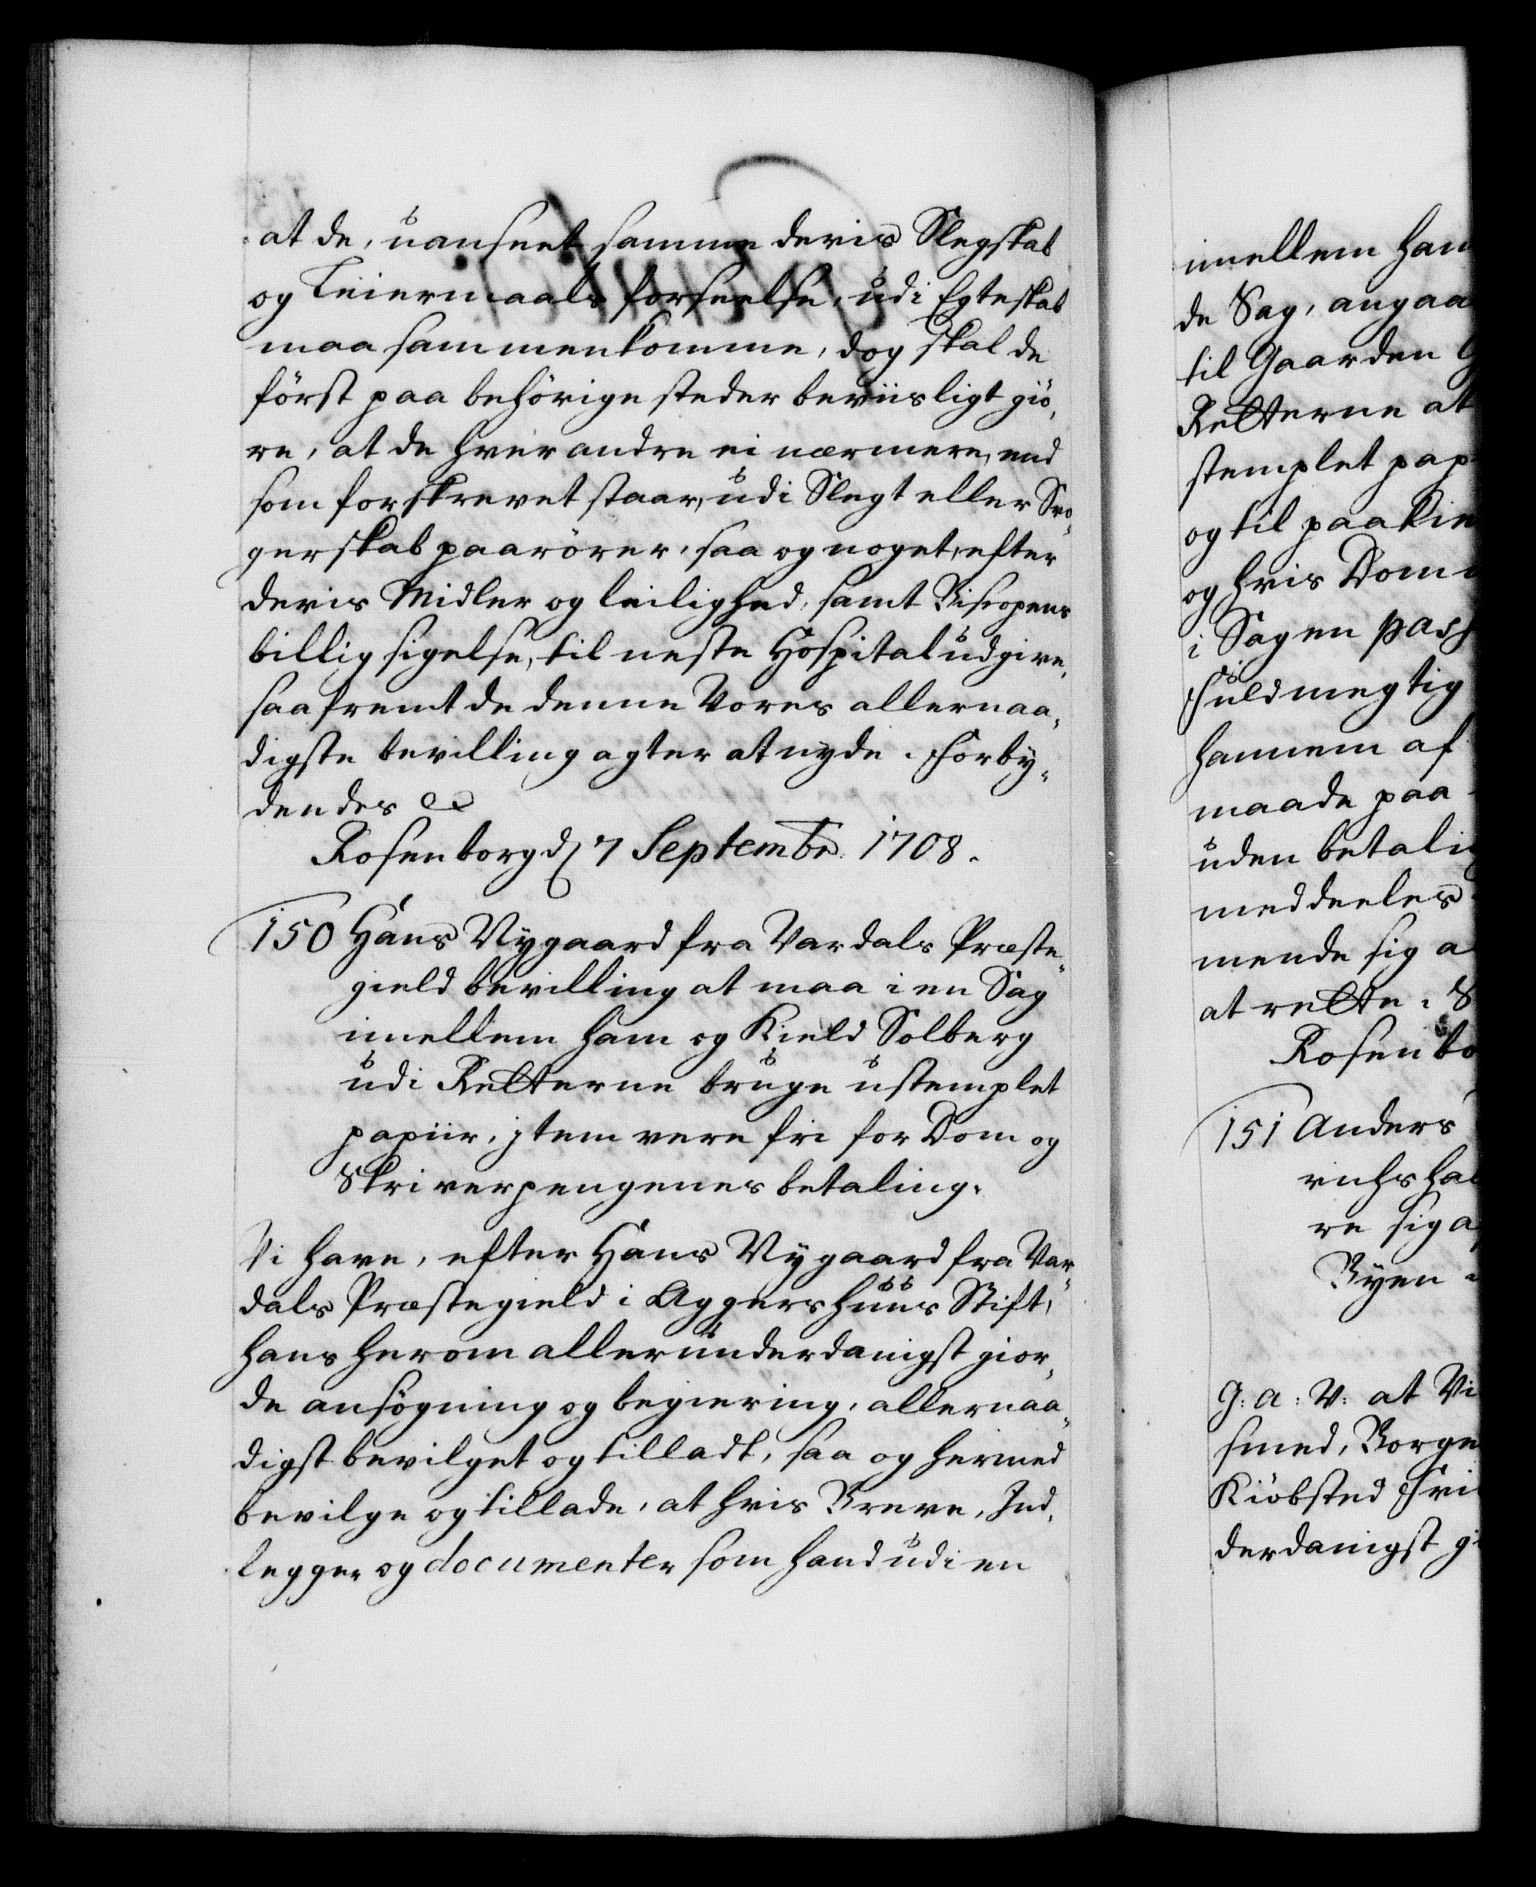 at de, uanseet samme deris Slegskab
og Leiermaals forseelse, udi Egteskab
maa sammenkomme, dog skal de
först paa behörige steder beviisligt giö„
re, at de hver andre ei nærmere, end
som forskrevet staar, udi Slegt eller Svo„
gerskab paarörer, saa og noget, efter
deris Midler og leilighed, samt Biscopens
billig sigelse, til neste Hospital udgive,
saafremt de denne Vores allernaa„
digste bevilling agter at nyde. Forby„
dendes &c
Rosenborg d 7 Septembr. 1708.
150 Hans Nygaard fra Vardals Præste„
gield bevilling at maa i en Sag
imellem ham og Kield Solberg
udi Retterne bruge ustemplet
papiir, jtem vere fri for Dom og
Skriverpengenes betaling.
Vi have, efter Hans Nygaard fra Var„
dals Præstegield i Aggershuus Stift,
hans herom allerunderdanigst gior„
de ansögning og begiering, allernaa„
digst bevilget og tilladt, saa og hermed
bevilge og tillade, at hvis Breve, Ind„
legger og documenter som hand udi en
imellem ham
de Sag, angaa
til Gaarden
Retterne at
stemplet pap
og til paakie
og hvis Dom
i Sagen pass
Fuldmegtig
hannem af
maade paa
uden betali
meddeeles
mende sig a
at rette. S
Rosenbo
151 Anders
richsha
re sig a
Byen
G: A: V: at Vi
smed, Borge
Kiöbsted Fri
derdanigst gi